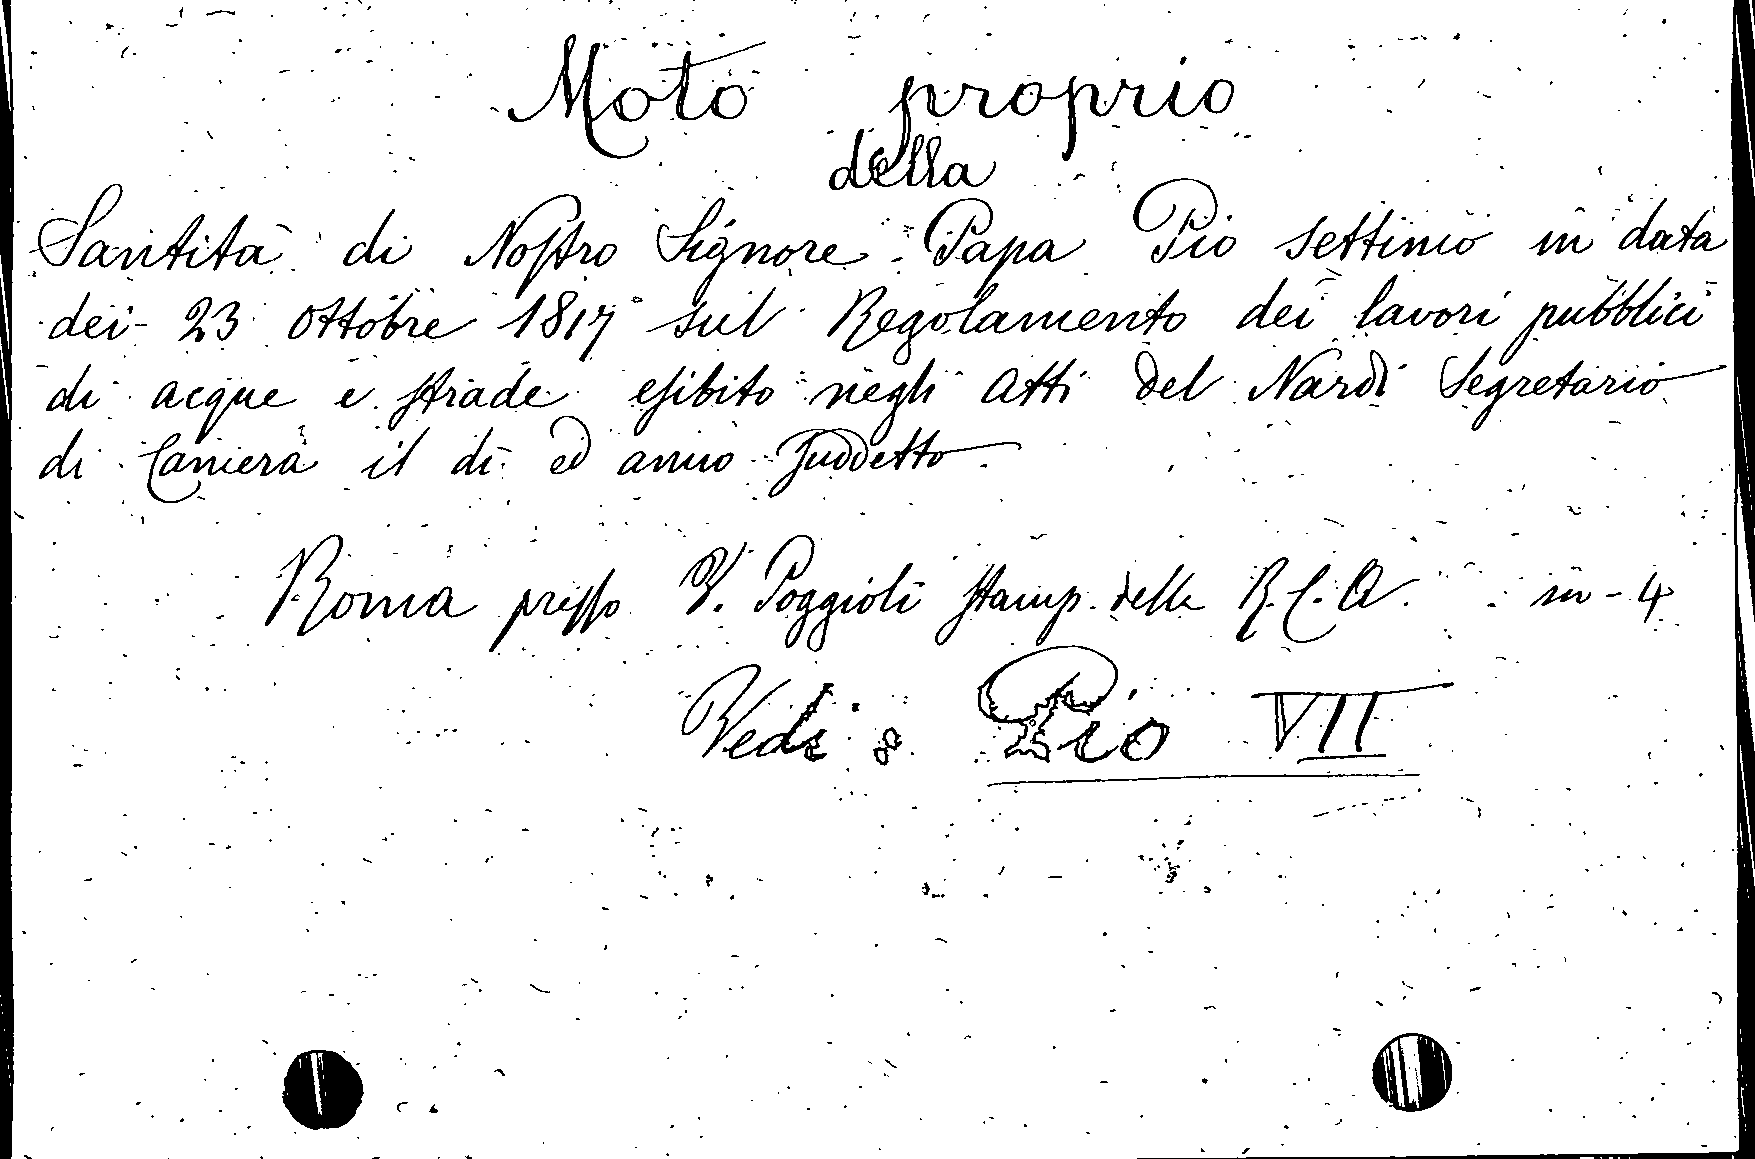 Moto proprio
della
Santità di Nostro Signore Papa Pio settimo in data
dei 23 ottobre 1817 sul Regolamento dei lavori pubblici
di acque e strade esibito negli atti del Nardi Segretario
di Camera il dì ed anno suddetto.
Roma presso V. Poggioli stamp. della R.C.A. in-4
Vedi: Pio VII